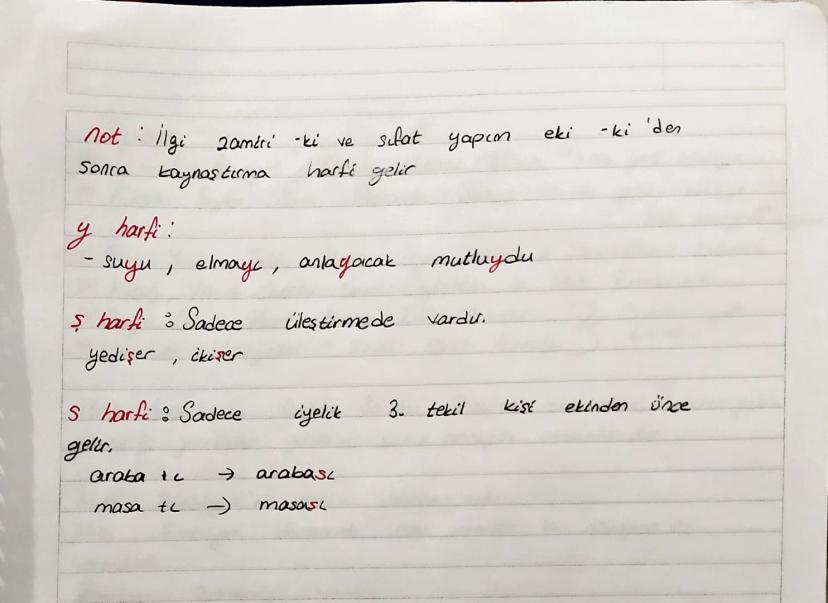 not : İlgi zamiri -ki ve sıfat yapım eki -ki'den
sonra kaynaştırma harfi gelir
y harfi:
- suyu, elmayı, anlayacak mutluydu
ş harfi : Sadece üleştirmede vardır.
yedişer, ikişer
s harfi : Sadece iyelik 3. tekil kişi ekinden önce
gelir.
araba +ı → arabası
masa +ı → masası